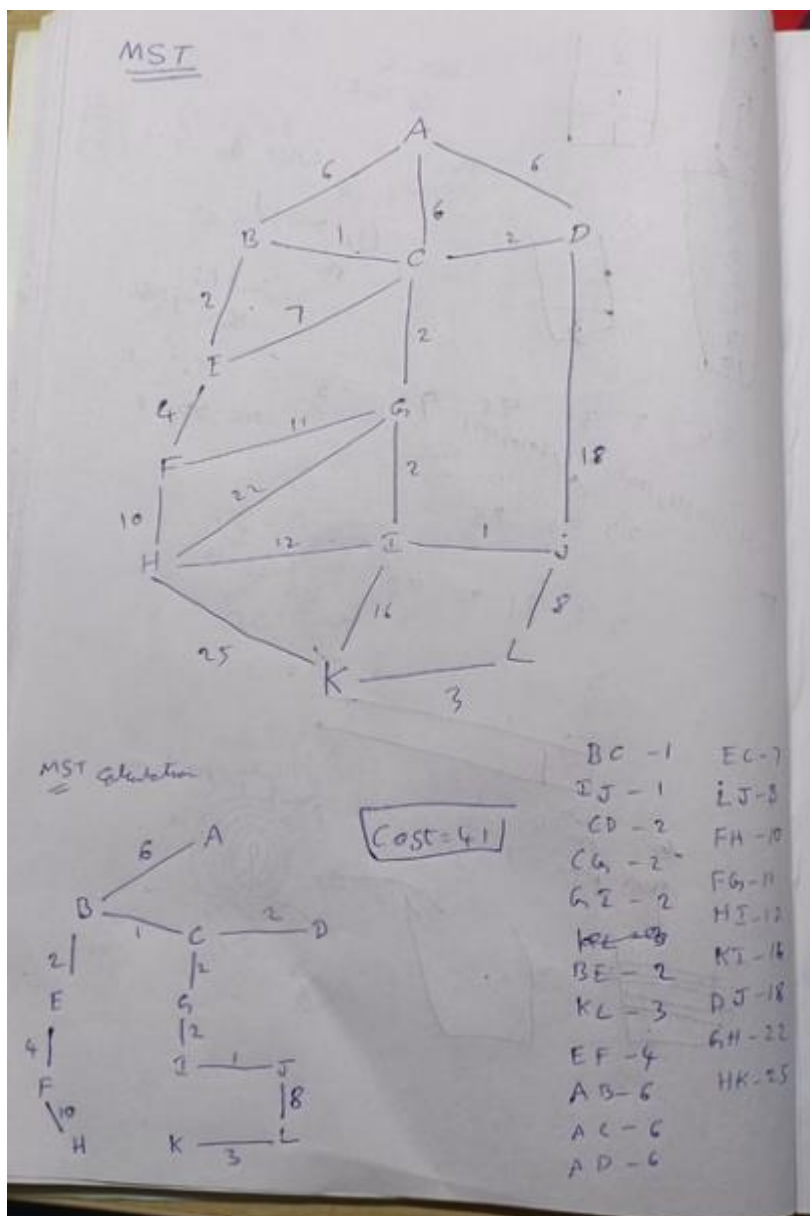 MST
A
6 6
6
B 1 C 2 D
2 7
2
E
4 G
F 11
22 2 18
10
H 12 I 1 J
16 8
25
K 3 L
MST Calculation
Cost = 41
6 A
B 1 C 2 D
2 2
E G
4 2
F I 1 J
10 8
H K 3 L
BC - 1
IJ - 1
CD - 2
CG - 2
GI - 2
BE - 2
KL - 3
EF - 4
AB - 6
AC - 6
AD - 6
EC - 7
LJ - 8
FH - 10
FG - 11
HI - 12
KI - 16
DJ - 18
GH - 22
HK - 25